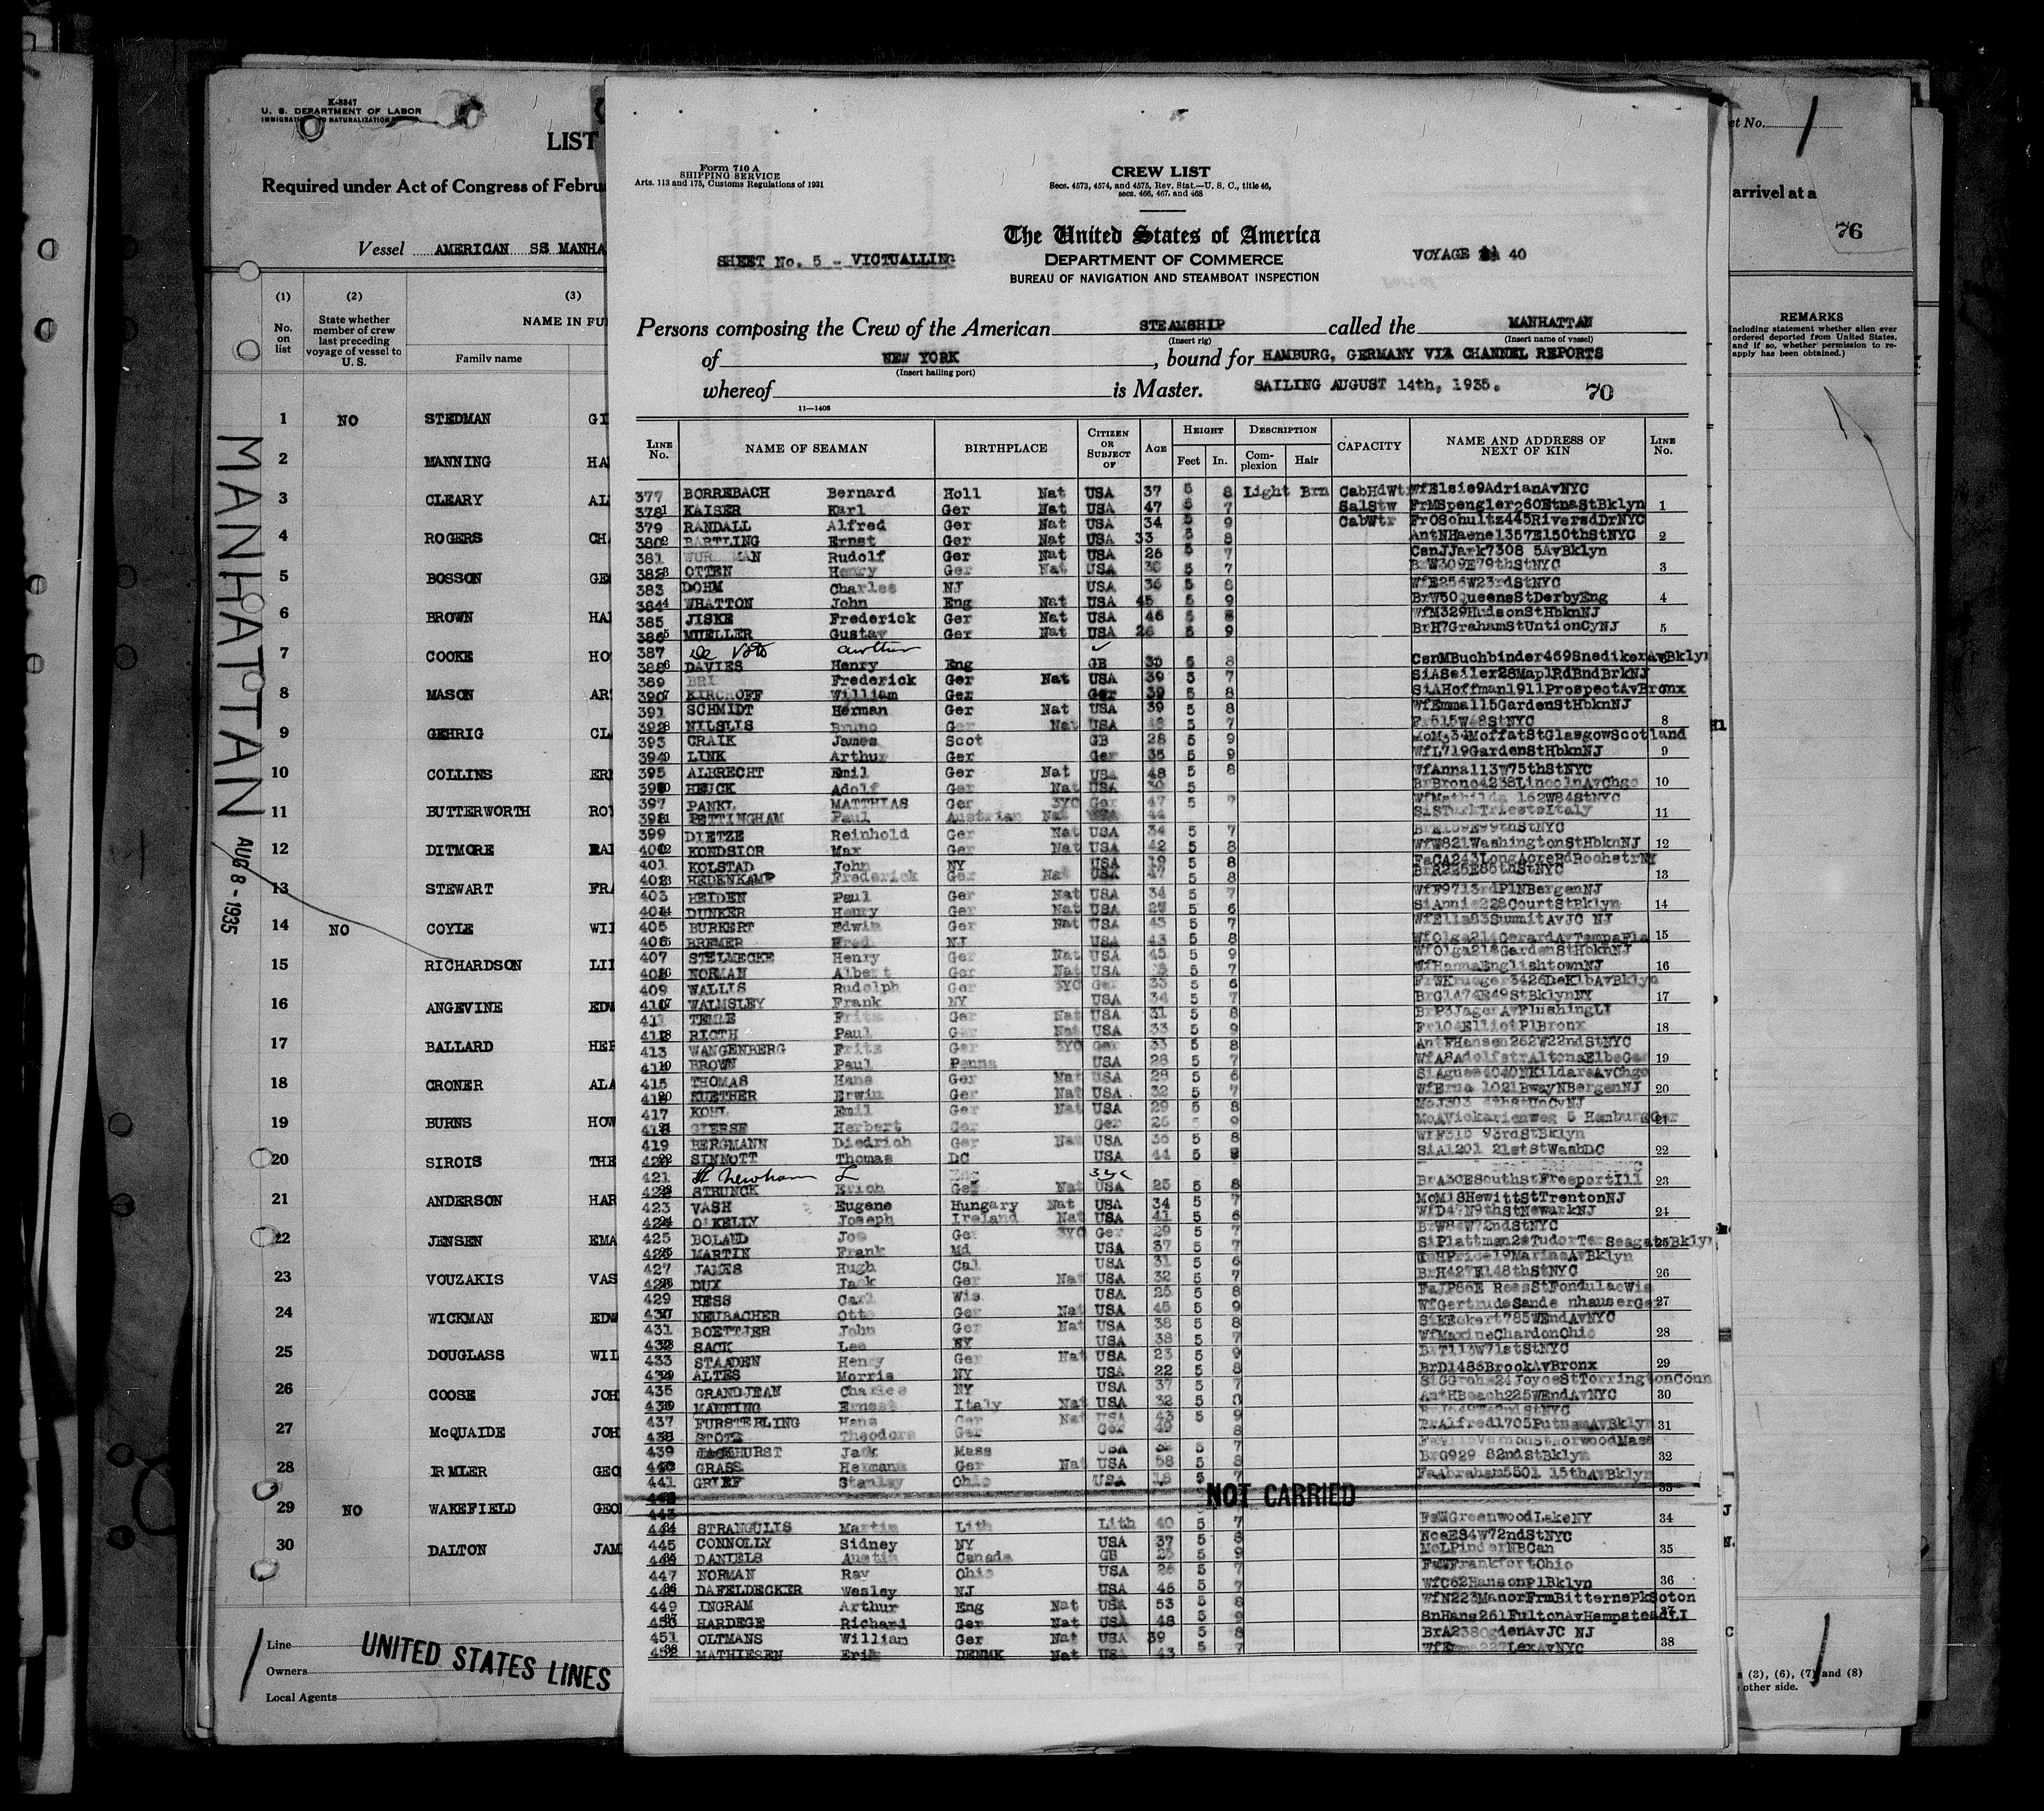 K-8347
U. S. DEPARTMENT OF LABOR
LIST
Required under Act of Congress of Febru
Vessel AMERICAN SS MANHA
(1) (2) (3)
No. on list
State whether member of crew last preceding voyage of vessel to U. S.
NAME IN FU
Family name
1 NO STEDMAN GI
2 MANNING HA
3 CLEARY AL
4 ROGERS CH
5 BOSSON GE
6 BROWN HA
7 COOKE HO
8 MASON AR
9 GEHRIG CL
10 COLLINS ER
11 BUTTERWORTH ROY
12 DITMORE RA
13 STEWART FRA
14 NO COYLE WI
15 RICHARDSON LI
16 ANGEVINE EDW
17 BALLARD HER
18 CRONER ALA
19 BURNS HOW
20 SIROIS THE
21 ANDERSON HAR
22 JENSEN EMA
23 VOUZAKIS VAS
24 WICKMAN EDW
25 DOUGLASS WIL
26 COOSE JOH
27 McQUAIDE JOH
28 GEO
29 NO WAKEFIELD GEO
30 DALTON JAM
Line
Owners UNITED STATES LINES
Local Agents
MANHATTAN
AUG 8 - 1935
Form 710 A
SHIPPING SERVICE
Arts. 113 and 175, Customs Regulations of 1931
CREW LIST
Secs. 4573, 4574, and 4575, Rev. Stat.—U. S. C., title 46,
secs. 466, 467, and 468
The United States of America
SHEET No. 5 - VICTUALLING
DEPARTMENT OF COMMERCE
VOYAGE 40
BUREAU OF NAVIGATION AND STEAMBOAT INSPECTION
Persons composing the Crew of the American STEAMSHIP called the MANHATTAN
(Insert rig) (Insert name of vessel)
of NEW YORK, bound for HAMBURG, GERMANY VIA CHANNEL REPORTS
(Insert hailing port)
whereof is Master. SAILING AUGUST 14th, 1935. 70
11—1408
LINE No. NAME OF SEAMAN BIRTHPLACE CITIZEN OR SUBJECT OF AGE HEIGHT Feet In. DESCRIPTION Complexion Hair CAPACITY NAME AND ADDRESS OF NEXT OF KIN LINE No.
377 BORREBACH Bernard Holl Nat USA 37 5 8 Light Brn CabHdWt WfElsie9AdrianAvNYC
378 KAISER Karl Ger Nat USA 47 5 7 SalStw FrMSpengler260EtnaStBklyn 1
379 RANDALL Alfred Ger Nat USA 34 5 9 CabWtr FrOSchultz445RiversdDrNYC
380 BARTLING Ernst Ger Nat USA 33 5 8 AntNHaene1357E150thStNYC 2
381 Rudolf Ger Nat USA 26 5 7 CsnJJark7308 5AvBklyn
382 OTTEN Henry Ger Nat USA 5 7 BrW309E79thStNYC 3
383 DOHM Charles NJ USA 36 5 8 WfE256W23rdStNYC
384 WHATTON John Eng Nat USA 45 5 9 BrW50QueensStDerbyEng 4
385 JISKE Frederick Ger Nat USA 46 5 8 WfM329HudsonStHbknNJ
386 MUELLER Gustav Ger Nat USA 26 5 9 BrH7GrahamStUntionCyNJ 5
387 De Voto Arthur
388 DAVIES Henry Eng GB 30 5 8 CsnMBuchbinder469SnedikerAvBklyn
389 Frederick Ger Nat USA 39 5 7 SiASeiler28MaplRdBndBrkNJ
390 KIRCHOFF William Ger Ger 39 5 8 SiAHoffman1911ProspectAvBronx
391 SCHMIDT Herman Ger Nat USA 39 5 8 WfEmma115GardenStHbknNJ
392 NILSLIS Bruno Ger Nat USA 5 7 Fr515W48StNYC 8
393 CRAIK James Scot GB 28 5 9 MoM334MoffatStGlasgowScotland
394 LINK Arthur Ger Ger 35 5 9 WfL719GardenStHbknNJ 9
395 ALBRECHT Emil Ger Nat USA 48 5 8 WfAnna113W75thStNYC
396 HEUCK Adolf Ger Nat USA 5 BrBrono4238LincolnAvChgo 10
397 PANKL MATTHIAS Ger 3YC Ger 47 5 WfMathilda 162W84StNYC
398 PETTINGHAM Paul Austrian Nat 44 SiSTurkTriesteItaly 11
399 DIETZE Reinhold Ger Nat USA 34 5 7
400 KONDSIOR Max Ger Nat USA 42 5 8 WfW821WashingtonStHbknNJ 12
401 KOLSTAD John NY USA 19 5 8 FaCA243LongAcreRdRochstrNY
402 HEDENKAMP Frederick Ger Nat USA 47 5 8 BrR225E85thStNYC 13
403 HEIDEN Paul Ger Nat USA 34 5 7 WfF9713rdPlNBergenNJ
404 DUNKER Henry Ger Nat USA 5 6 SiAnnie228CourtStBklyn 14
405 BURKERT Edwin Ger Nat USA 43 5 7 WfElla83SummitAvJC NJ
406 BREMER Fred NJ USA 43 5 8 WfOlga214GerardAvTampaFla 15
407 STELMECKE Henry Ger Nat USA 45 5 9 WfOlga218GardenStHbknNJ
408 NORMAN Albert Ger Nat USA 5 7 WfHannaEnglishtownNJ 16
409 WALLIS Rudolph Ger 3YC Ger 33 5 6 FrWKrueger3426DeKlbAvBklyn
410 WALMSLEY Frank NY USA 34 5 7 BrG1474E49StBklynNY 17
411 TEMME Fritz Ger Nat USA 31 5 8 BrP3JagerAvFlushingLI
412 RIOTH Paul Ger Nat USA 33 5 9 Fr104ElliotPlBronx 18
413 WANGENBERG Fritz Ger 3YC Ger 33 5 8 AntFHansen262W22ndStNYC
414 BROWN Paul Penna USA 28 5 7 WfA8AdolfstrAltonaElbeGer 19
415 THOMAS Hans Ger Nat USA 28 5 6 SiAgnes4040NKildareAvChgo
416 KUETHER Erwin Ger Nat USA 32 5 7 WfErna 1021BwayNBergenNJ 20
417 KOHL Emil Ger Nat USA 29 5 8
418 GIERSE Herbert Ger Ger 26 9 MoAVickarienweg 5 HamburgGer 21
419 BERGMANN Diedrich Ger Nat USA 36 5 8 WfF310 93rdStBklyn
420 SINNOTT Thomas DC USA 44 5 8 SiA1201 21stStWashDC 22
421 Newham L Eng 3yc
422 STRUNCK Erich Ger Nat USA 25 5 8 BrA30ESouthStFreeportIll 23
423 VASH Eugene Hungary Nat USA 34 5 7 MoM18HewittStTrentonNJ
424 O'KELLY Joseph Ireland Nat USA 41 5 6 WfD47N9thStNewarkNJ 24
425 BOLAND Joe Ger 3YC Ger 29 5 7 BrW84W72ndStNYC
426 MARTIN Frank Md USA 37 5 7 SiPlattman2eTudorTerSeagateBklyn 25
427 JAMES Hugh Cal USA 31 5 6
428 DUX Jack Ger Nat USA 32 5 7 BrH427E148thStNYC 26
429 HESS Carl Wis USA 25 5 8 FaJP86E ReesStFondulacWis
430 NEUBACHER Otto Ger Nat USA 45 5 9 27
431 BOETTJER John Ger Nat USA 38 5 8 SiEEckert785WEndAvNYC
432 SACK Lee USA 38 5 7 WfMaxineChardonOhio 28
433 STAADEN Henry Ger Nat USA 23 5 9 BrT113W71stStNYC
434 ALTES Morris NY USA 22 5 8 BrD1486BrookAvBronx 29
435 GRANDJEAN Charles NY USA 37 5 7 SiGGrohs24JoyceStTorringtonConn
436 MANNING Ernest Italy Nat USA 32 5 8 AntHBeach225WEndAvNYC 30
437 FURSTERLING Hans Ger Nat USA 43 5 9
438 STOTZ Theodore Ger Ger 49 8 BrAlfred1705PutnamAvBklyn 31
439 Jack Mass USA 5 7
440 GRASS Hermann Ger Nat USA 58 5 8 BrG929 82ndStBklyn 32
441 GRIEF Stanley Ohio USA 18 5 7 FaAbraham5501 15thAvBklyn
NOT CARRIED 33
443
444 STRANGULIS Martin Lith Lith 40 5 7 FaMGreenwoodLakeNY 34
445 CONNOLLY Sidney NY USA 37 5 8 NceES4W72ndStNYC
446 DANIELS Austin Canada GB 25 5 9 MoLPinderNBCan 35
447 NORMAN Ray Ohio USA 26 5 7 FaWFrankfortOhio
448 DAFELDECKER Wesley NJ USA 46 5 7 WfC62HansonPlBklyn 36
449 INGRAM Arthur Eng Nat USA 53 5 8 WfN223ManorFrmBitternePkSoton
450 HARDEGE Richard Ger Nat USA 48 5 9 SnHans261FultonAvHempsteadLI 37
451 OLTMANS William Ger Nat USA 39 5 8 BrA238OgdenAvJC NJ
452 MATHIESEN Erik DENMK Nat USA 43 5 7 WfEmma227LexAvNYC 38
et No. 1
arrivel at a
76
REMARKS
Including statement whether alien ever
ordered deported from United States,
and if so, whether permission to re-
apply has been obtained.)
s (2), (6), (7) and (8)
other side.